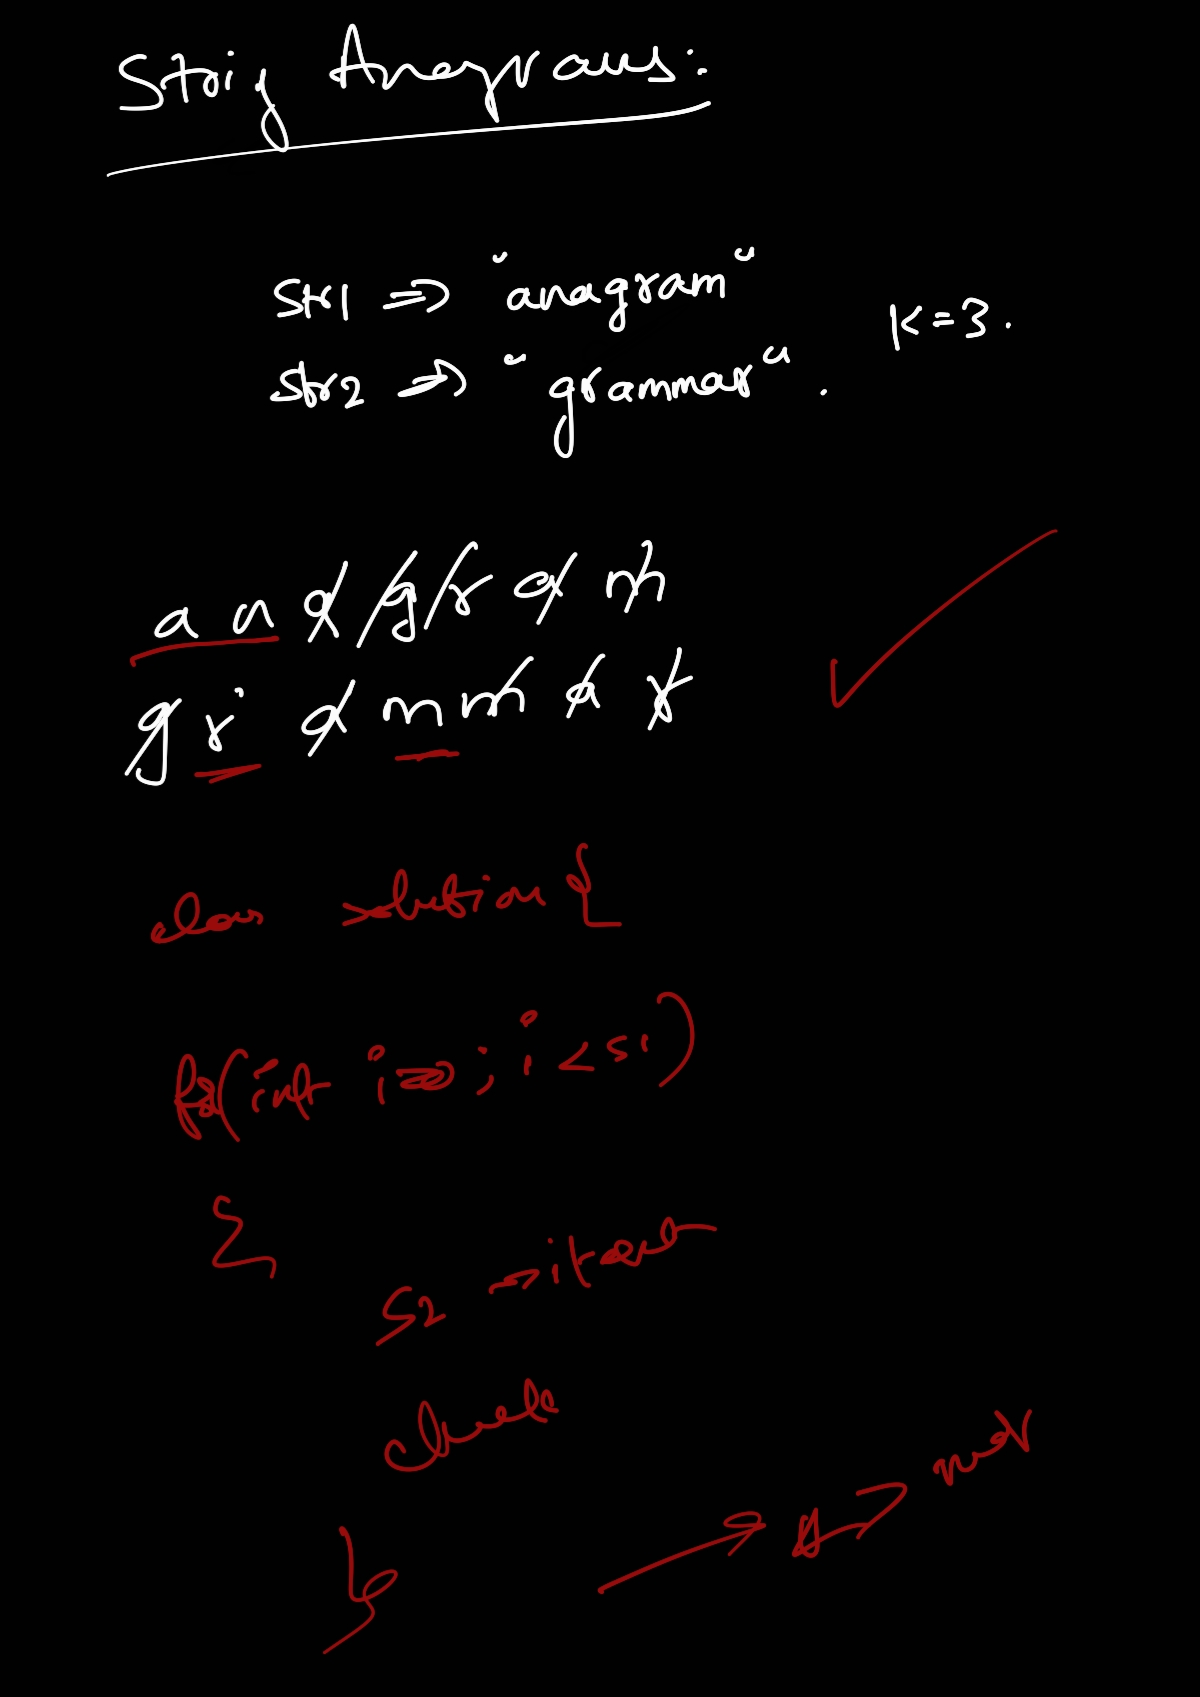 String Anagrams:
Str1 => "anagram"
K=3.
Str2 => "grammar".
a n a g r a m
g r a m m a r
class solution {
for(int i=0; i<s1)
{
S2 →iterate
check
}